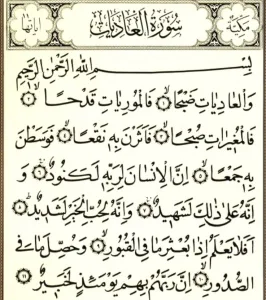 مكية سُورَةُ الْعَادِيَات آياتها
بِسْمِ اللهِ الرَّحْمٰنِ الرَّحِيمِ
وَالْعَادِيَاتِ ضَبْحًا فَالْمُورِيَاتِ قَدْحًا
فَالْمُغِيرَاتِ صُبْحًا فَأَثَرْنَ بِهِ نَقْعًا فَوَسَطْنَ
بِهِ جَمْعًا إِنَّ الْإِنْسَانَ لِرَبِّهِ لَكَنُودٌ وَ
إِنَّهُ عَلَىٰ ذَٰلِكَ لَشَهِيدٌ وَإِنَّهُ لِحُبِّ الْخَيْرِ لَشَدِيدٌ
أَفَلَا يَعْلَمُ إِذَا بُعْثِرَ مَا فِي الْقُبُورِ وَحُصِّلَ مَا فِي
الصُّدُورِ إِنَّ رَبَّهُمْ بِهِمْ يَوْمَئِذٍ لَخَبِيرٌ